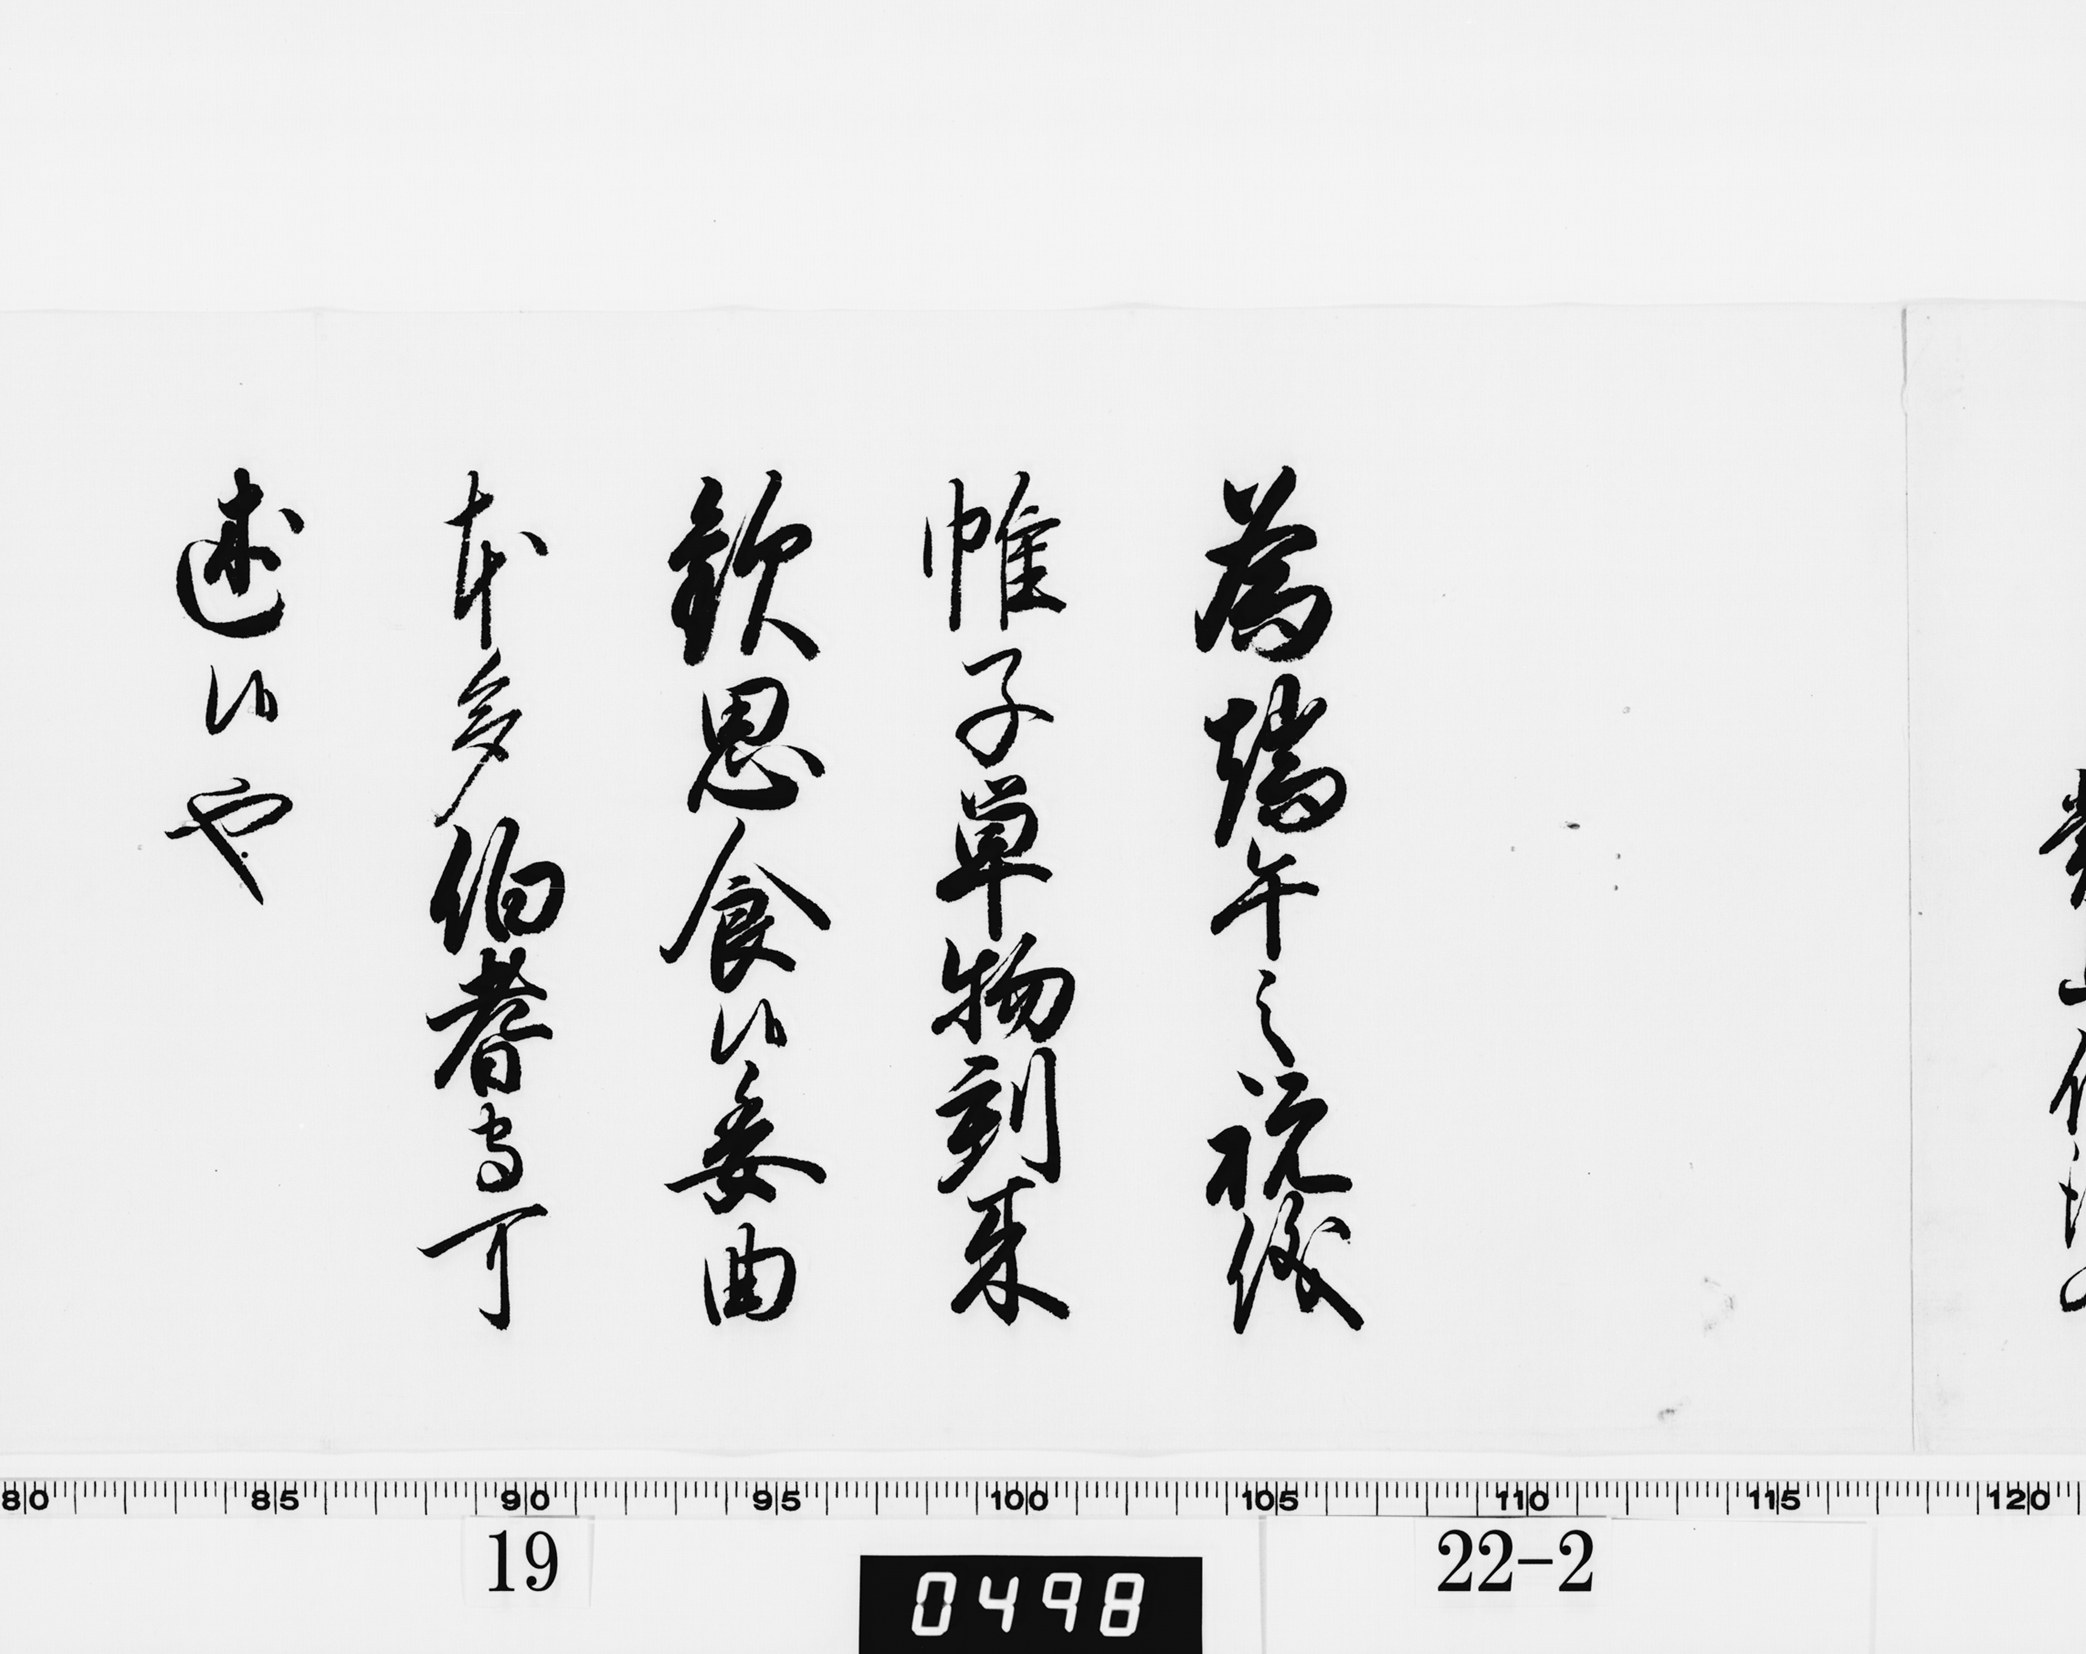 為端午之祝儀
帷子単物到来
歓思食候委曲
本多伯耆守可
述候也
80 85 90 95 100 105 110 115 120
19
22-2
0498